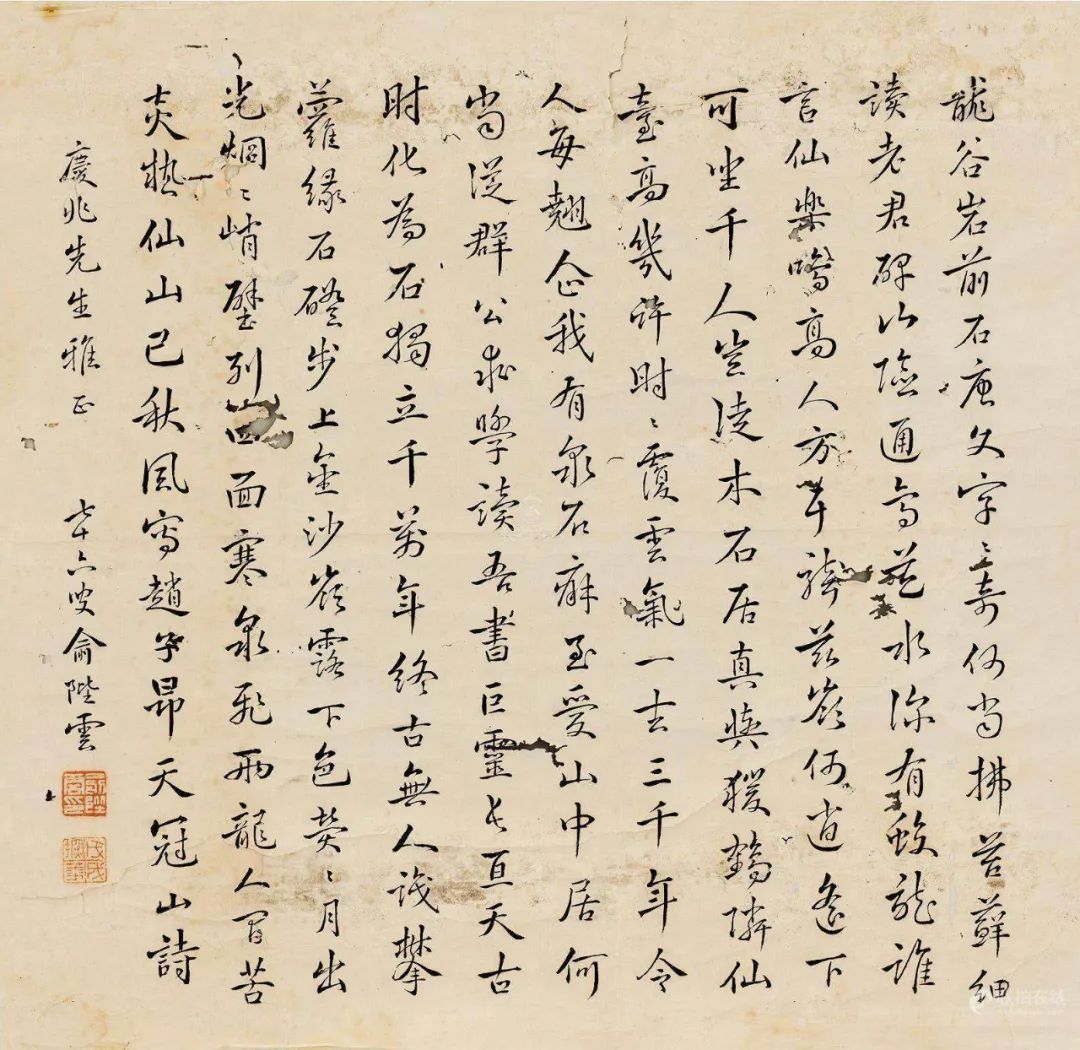 龍谷岩前石座文字々奇何當拂苔蘚細
讀老君碑山險通鳥道水深有蛟龍誰
言仙樂鳴高人方耳聽兹巖何逍遙下
可坐千人豈徒木石居真與猨鶴隣仙
臺高幾許時々覆雲氣一去三千年令
人每翹企我有泉石癖至愛山中居何
當從群公求學讀吾書巨靈長亘天古
時化為石獨立千萬年終古無人識攀
蘿緣石磴步上金沙嶺露下色熒々月出
光炯々峭壁列四面寒泉飛兩龍人間苦
炎熱仙山已秋風寫趙子昂天冠山詩
慶兆先生雅正
七十六叟俞陛雲